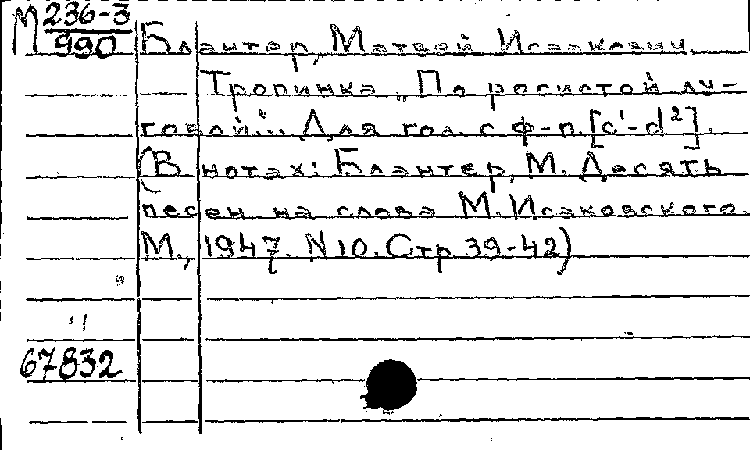 М 236-3
990
Блантер, Матвей Исаакович.
Тропинка „По росистой лу-
говой... Для гол. с ф-п. [c'-d²].
(В нотах: Блантер, М. Десять
песен на слова М. Исаковского.
М., 1947. N 10. Стр. 39-42)
67832